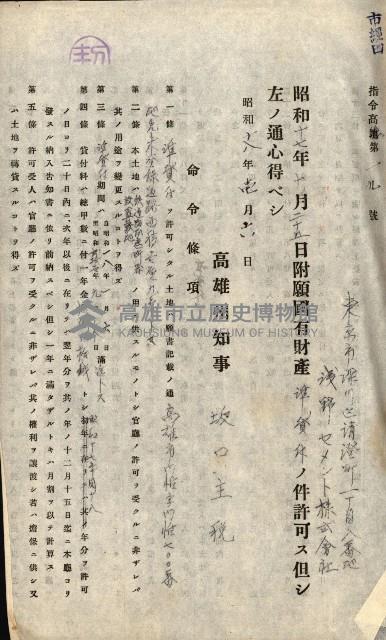 市經四
指令高地第 九 號
東京市深川區清澄町一丁目八番地
淺野セメント株式會社
昭和十七年十月二五日附願國有財產準貸付ノ件許可ス但シ
左ノ通心得ベシ
昭和十八年 月 六日
高雄州知事 坂口主稅
命令條項
第一條 準貸付ヲ許可シタル土地ハ願書記載ノ通高雄市
第二條 本土地ハ ノ用ニ供スルモノトシ官廳ノ許可ヲ受クルニ非ザレバ
其ノ用途ヲ變更スルコトヲ得ズ
第三條 準貸付期間ハ 昭和一八年一月六日 滿 トス
第四條 貸付料ハ總甲數ニ付一年金 トシ初年 共ノ年分ヲ許可
ノ日ヨリ二十日內ニ、次年以後ニ在リテハ翌年分ヲ其ノ年ノ十二月十五日迄ニ本廳ヨリ
發スル納入吿知書ニ依リ前納スベシ但シ一年ニ滿タザルトキハ月割ヲ以テ計算ス
第五條 許可受人ハ官廳ノ許可ヲ受クルニ非ザレバ其ノ權利ヲ讓渡シ若ハ擔保ニ供シ又
ハ土地ヲ轉貸スルコトヲ得ズ
高雄市立歷史博物館
KAOHSIUNG MUSEUM OF HISTORY